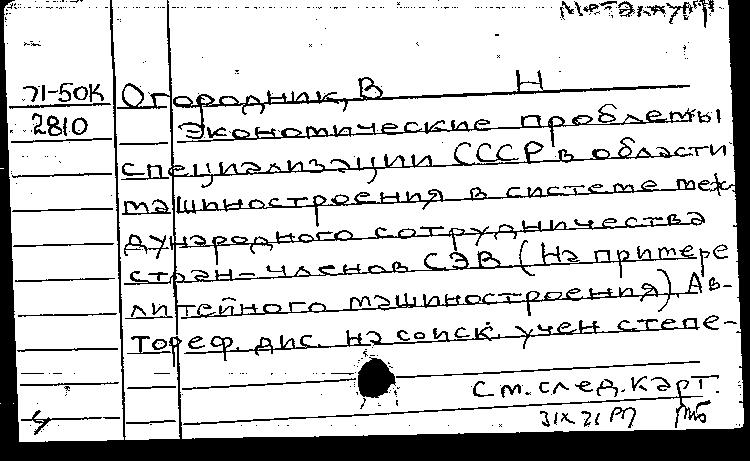 Металлург
71-50К Огородник, В Н
2810 Экономические проблемы
специализации СССР в области
машиностроения в системе меж-
дународного сотрудничества
стран-членов СЭВ (На примере
литейного машиностроения). Ав-
тореф. дис. на соиск. учен степе-
См. след. карт.
31X 71 РП